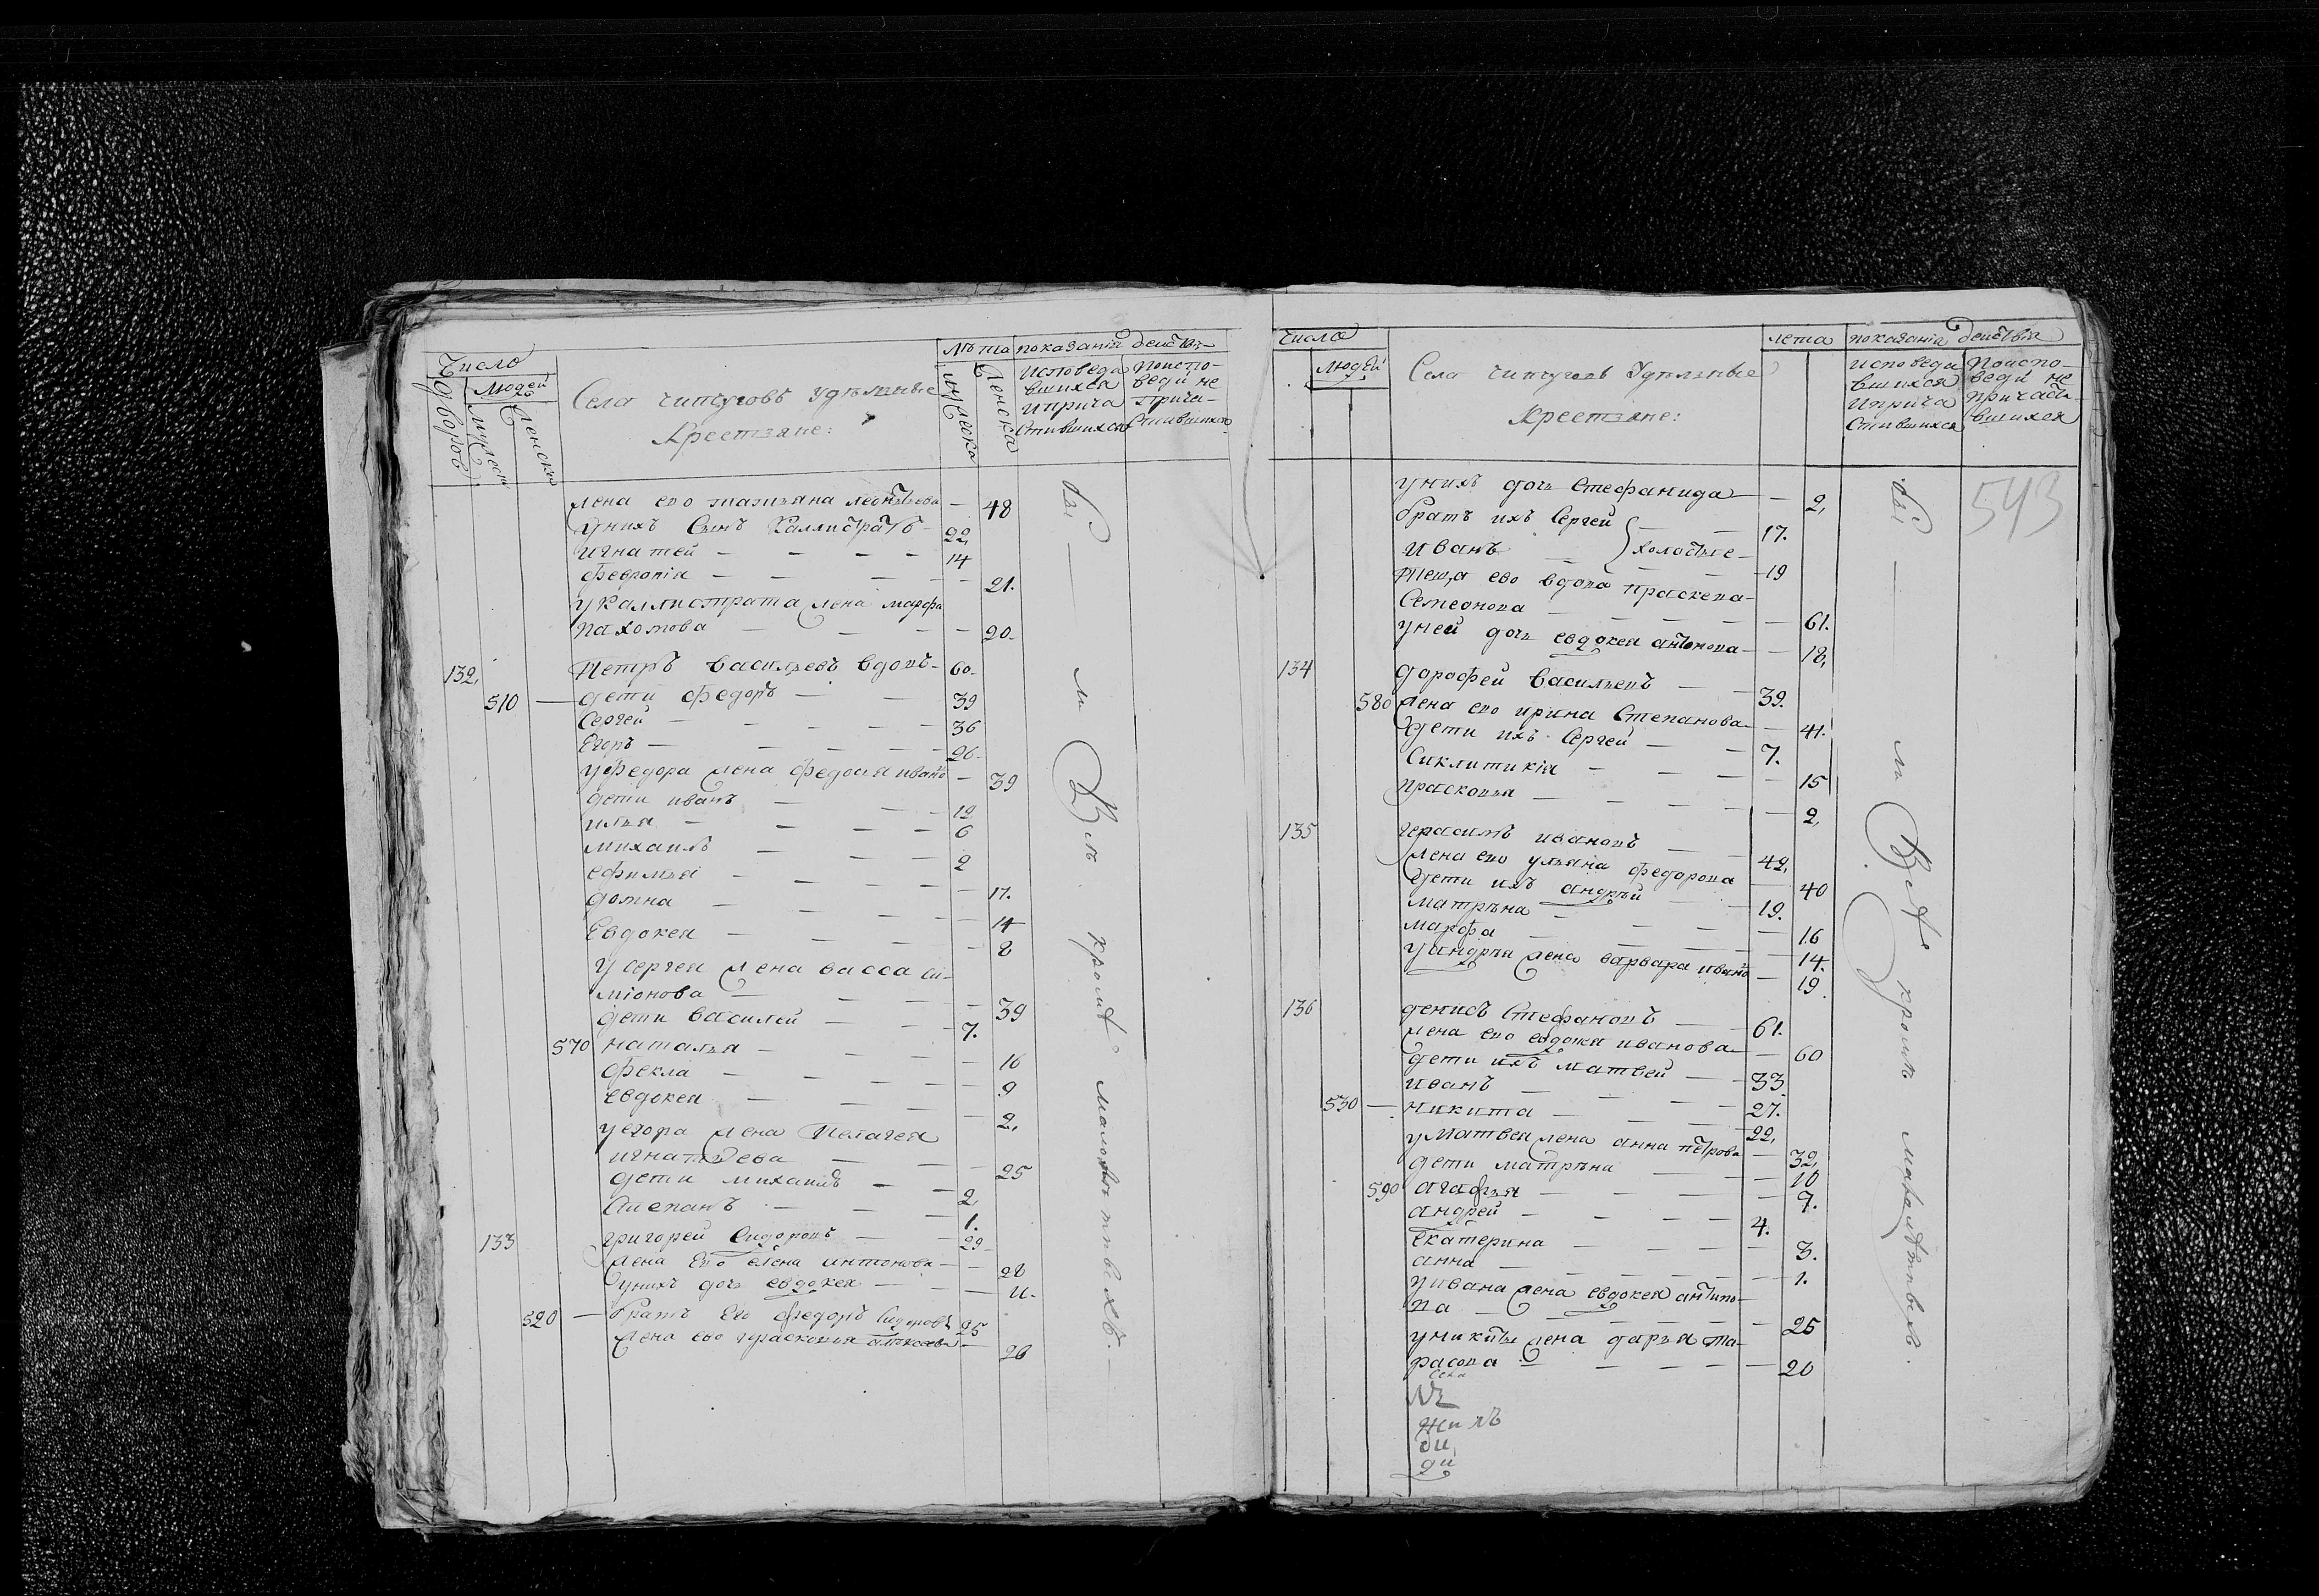 Число
Людей
дворов
мужеска
женска
Села чипчуговъ Удѣлные
Крестяне:
лѣта
мужеска
женска
показанія действъ
исповеда
вшихся
и прича
стившихся
поиспо-
веди не
прича-
стившихся
жена его татьяна леонтьева — 48
у нихъ сынъ Каллистратъ — 22
игнатей — — — 14
феврония — — — 21.
у Каллистрата жена марфа
пахомова — — — 20.
132. Петръ васильевъ вдовъ — 60.
510 — дети федоръ — — 39
Сергей — — — 36
Егоръ — — — 26
у федора жена федосья ивано — 39
дети иванъ — — 12
илья — — — 6
михаилъ — — — 2
ефимья — — — 17.
домна — — — 14
Евдокея — — — 8
у сергея жена васса си-
мионова — — — 39
дети василей — — 7.
570 наталья — — — 16
фекла — — — 9
евдокея — — — 2,
у егора жена Пелагея
игнатьева — — — 25
дети михаилъ — — 2,
степанъ — — — 1.
133 григорей Сидоровъ — — 29
жена его елена антонова — — 28
у нихъ дочь евдокея — — 11.
520 — братъ его федоръ Сидоровъ 25
жена его прасковья алексеева — 26
вси кромѣ малолѣтныхъ.
Число
Людей
Села чипчуговъ Удѣлные
Крестяне:
лета
показанія действія
исповеда
вшихся
и прича
стившихся
Поиспо-
веди не
причаст-
вшихся
543
у нихъ дочь Стефанида — — 2,
братъ ихъ Сергей — — 17.
иванъ — холостые — 19
теща его вдова праскева
Семеонова — — — 61.
у ней дочь евдокея антонова — — 18,
134 дорофей васильевъ — — 39.
580 жена его ирина Степанова — — 41.
дети ихъ Сергей — — 7.
Сиклитикія — — — 15
прасковья — — — 2,
135 герасимъ ивановъ — — 42,
жена его ульяна федорова — 40
дети ихъ андрѣй — — 19.
матрѣна — — — 16
марфа — — — 14.
у андрѣя жена варвара ивано — 19
136 денисъ Стефановъ — — 61.
жена его евдокея иванова — — 60
дети ихъ матвей — — 33
иванъ — — — 27.
530 — никита — — — 22,
у матвея жена анна петрова — 32,
дети матрѣна — — 10
590 агафья — — — 7.
андрей — — — 4.
екатерина — — — 3.
анна — — — 1.
у ивана жена евдокея антипо-
ва — — — 25
у никиты жена дарья та-
расова — — — 20
вси кромѣ малолѣтныхъ.